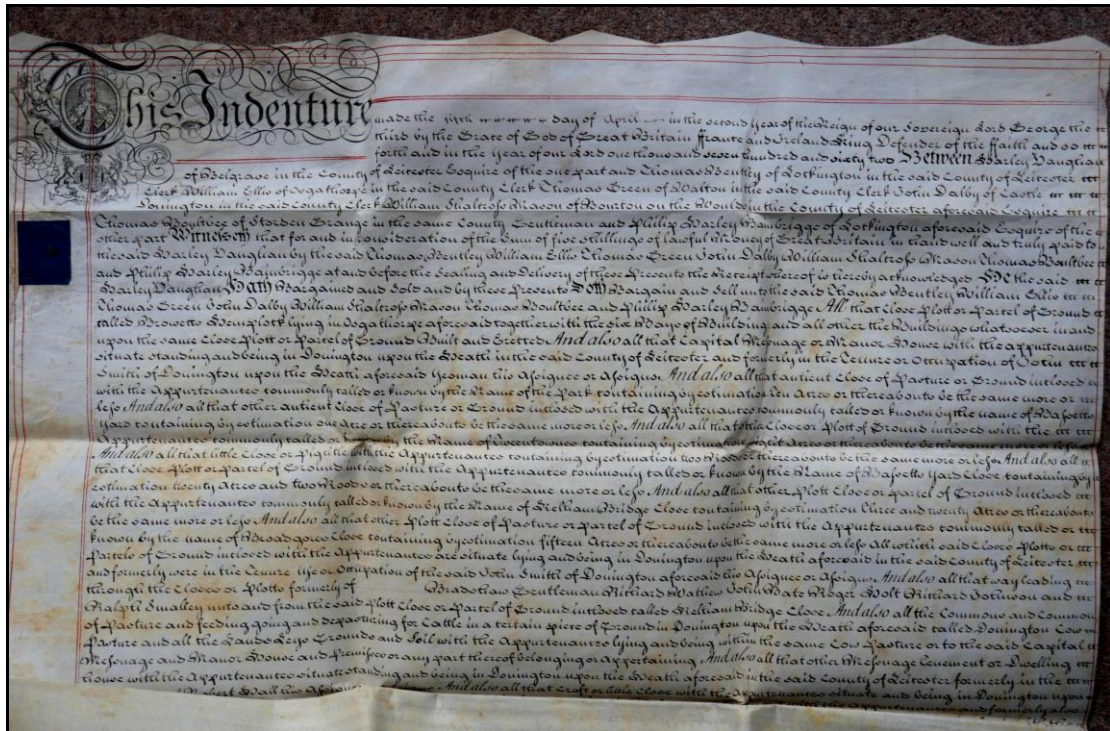 This Indenture made the day of April in the second year of the Reign of our Sovereign Lord George the
third by the Grace of God of Great Britain ffrance and Ireland King Defender of the ffaith and so
forth and in the year of our Lord one thousand seven hundred and sixty two Between Harley Vaughan
of Belgrave in the County of Leicester Esquire of the one part and Thomas Bentley of Lockington in the said County of Leicester
Clerk William Ellis of in the said County Clerk Thomas Green of Walton in the said County Clerk John Dalby of Castle
Donington in the said County Clerk William Shalcross Mason of Bourton on the Would in the County of Leicester aforesaid Esquire
Thomas Boultbee of Storden Grange in the same County Gentleman and Philip Harley Bainbrigge of Lockington aforesaid Esquire of the
other part Witnesseth that for and in consideration of the Sum of five shillings of lawful Money of Great Britain in hand well and truly paid to
the said Harley Vaughan by the said Thomas Bentley William Ellis Thomas Green John Dalby William Shalcross Mason Thomas Boultbee
and Philip Harley Bainbrigge at and before the Sealing and Delivery of these Presents the Receipt whereof is hereby acknowledged He the said
Harley Vaughan Hath Bargained and Sold and by these Presents Doth Bargain and Sell unto the said Thomas Bentley William Ellis
Thomas Green John Dalby William Shalcross Mason Thomas Boultbee and Philip Harley Bainbrigge All that Close Plott or Parcel of Ground
called lying in aforesaid together with the six Bays of Building and all other the Buildings whatsoever in and
upon the same Close Plott or Parcel of Ground Built and Erected And also all that Capital Messuage or Manor House with the appurtenances
situate standing and being in Donington upon the Heath in the said County of Leicester and formerly in the Tenure or Occupation of John
Smith of Donington upon the Heath aforesaid Yeoman his Assignee or Assigns And also all that antient Close of Pasture or Ground inclosed
with the Appurtenances commonly called or known by the Name of the Park containing by estimation ten Acres or thereabouts be the same more or
less And also all that other antient Close of Pasture or Ground inclosed with the Appurtenances commonly called or known by the name of
Yard containing by estimation one Acre or thereabouts be the same more or less And also all that other Close or Plott of Ground inclosed with the
Appurtenances commonly called or by the Name of containing by estimation Eight Acres or thereabouts be the same more or less
And also all that little Close or Pightle with the Appurtenances containing by estimation two Roods or thereabouts be the same more or less And also all
that Close Plott or Parcel of Ground inclosed with the Appurtenances commonly called or known by the Name of Yard Close containing by
estimation twenty Acres and two Roods or thereabouts be the same more or less And also all that other Plott Close or Parcel of Ground inclosed
with the Appurtenances commonly called or known by the Name of Bridge Close containing by estimation Three and twenty Acres or thereabouts
be the same more or less And also all that other Plott Close of Pasture or Parcel of Ground inclosed with the Appurtenances commonly called or
known by the name of Close containing by estimation fifteen Acres or thereabouts be the same more or less All which said Closes Plotts or
Parcels of Ground inclosed with the Appurtenances are situate lying and being in Donington upon the Heath aforesaid in the said County of Leicester
and formerly were in the Tenure use or Occupation of the said John Smith of Donington aforesaid his Assignee or Assigns And also all that way leading
through the Closes or Plotts formerly of Bradshaw Gentleman Richard Mathew John Bate Roger Holt Richard Johnson and
Ralph Smalley unto and from the said Plott Close or Parcel of Ground inclosed called Bridge Close And also all the Commons and Common
of Pasture and feeding going and depasturing for Cattle in a certain piece of Ground in Donington upon the Heath aforesaid called Donington Cow
Pasture and all the Lands Leys Grounds and Soil with the Appurtenances lying and being within the same Cow Pasture or to the said Capital
Messuage and Manor House and Premisses or any part thereof belonging or Appertaining And also all that other Messuage Tenement or Dwelling
house with the Appurtenances situate standing and being in Donington upon the Heath aforesaid in the said County of Leicester formerly in the
his And also all that Croft or little Close with the Appurtenances situate and being in Donington upon
and formerly also